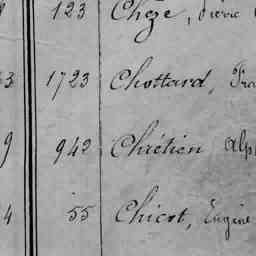 123 Chèze, Pierre
3 1723 Chottard, Fra
9 942 Chrétien Alp
4 55 Chicot, Eugène